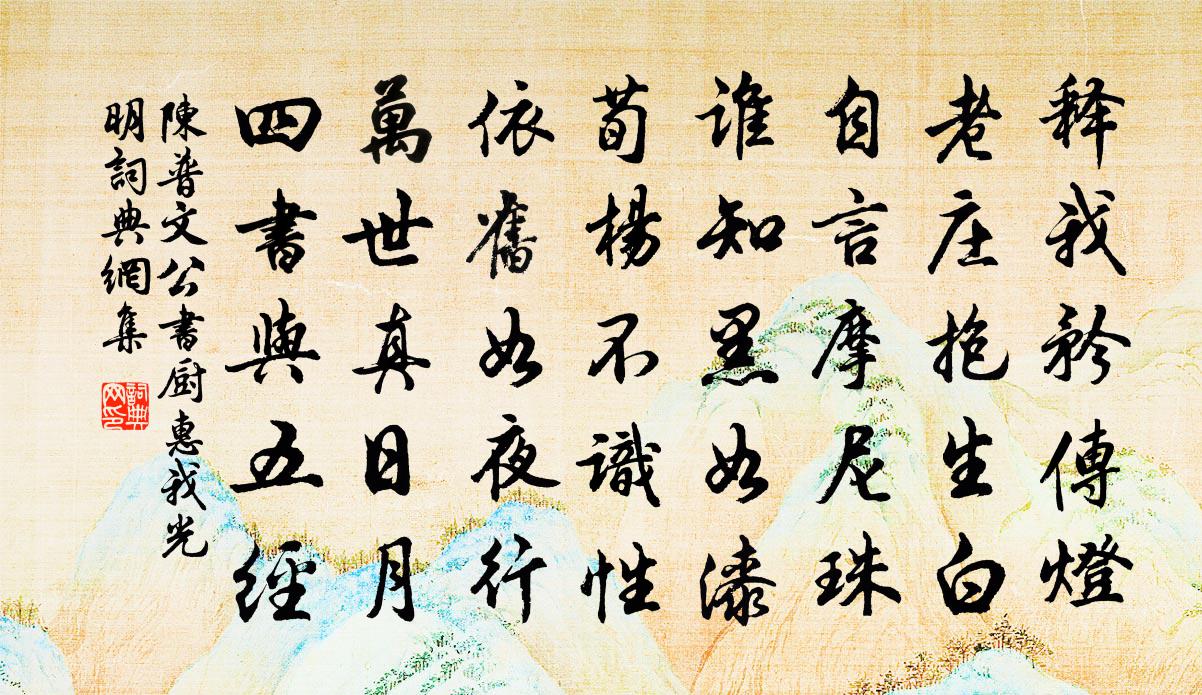 释我矜傳燈
老庄抱生白
自言摩尼珠
谁知黑如漆
荀楊不識性
依舊如夜行
萬世真日月
四書與五經
陳普文公書厨惠我光
明詞典網集
詞典
网印